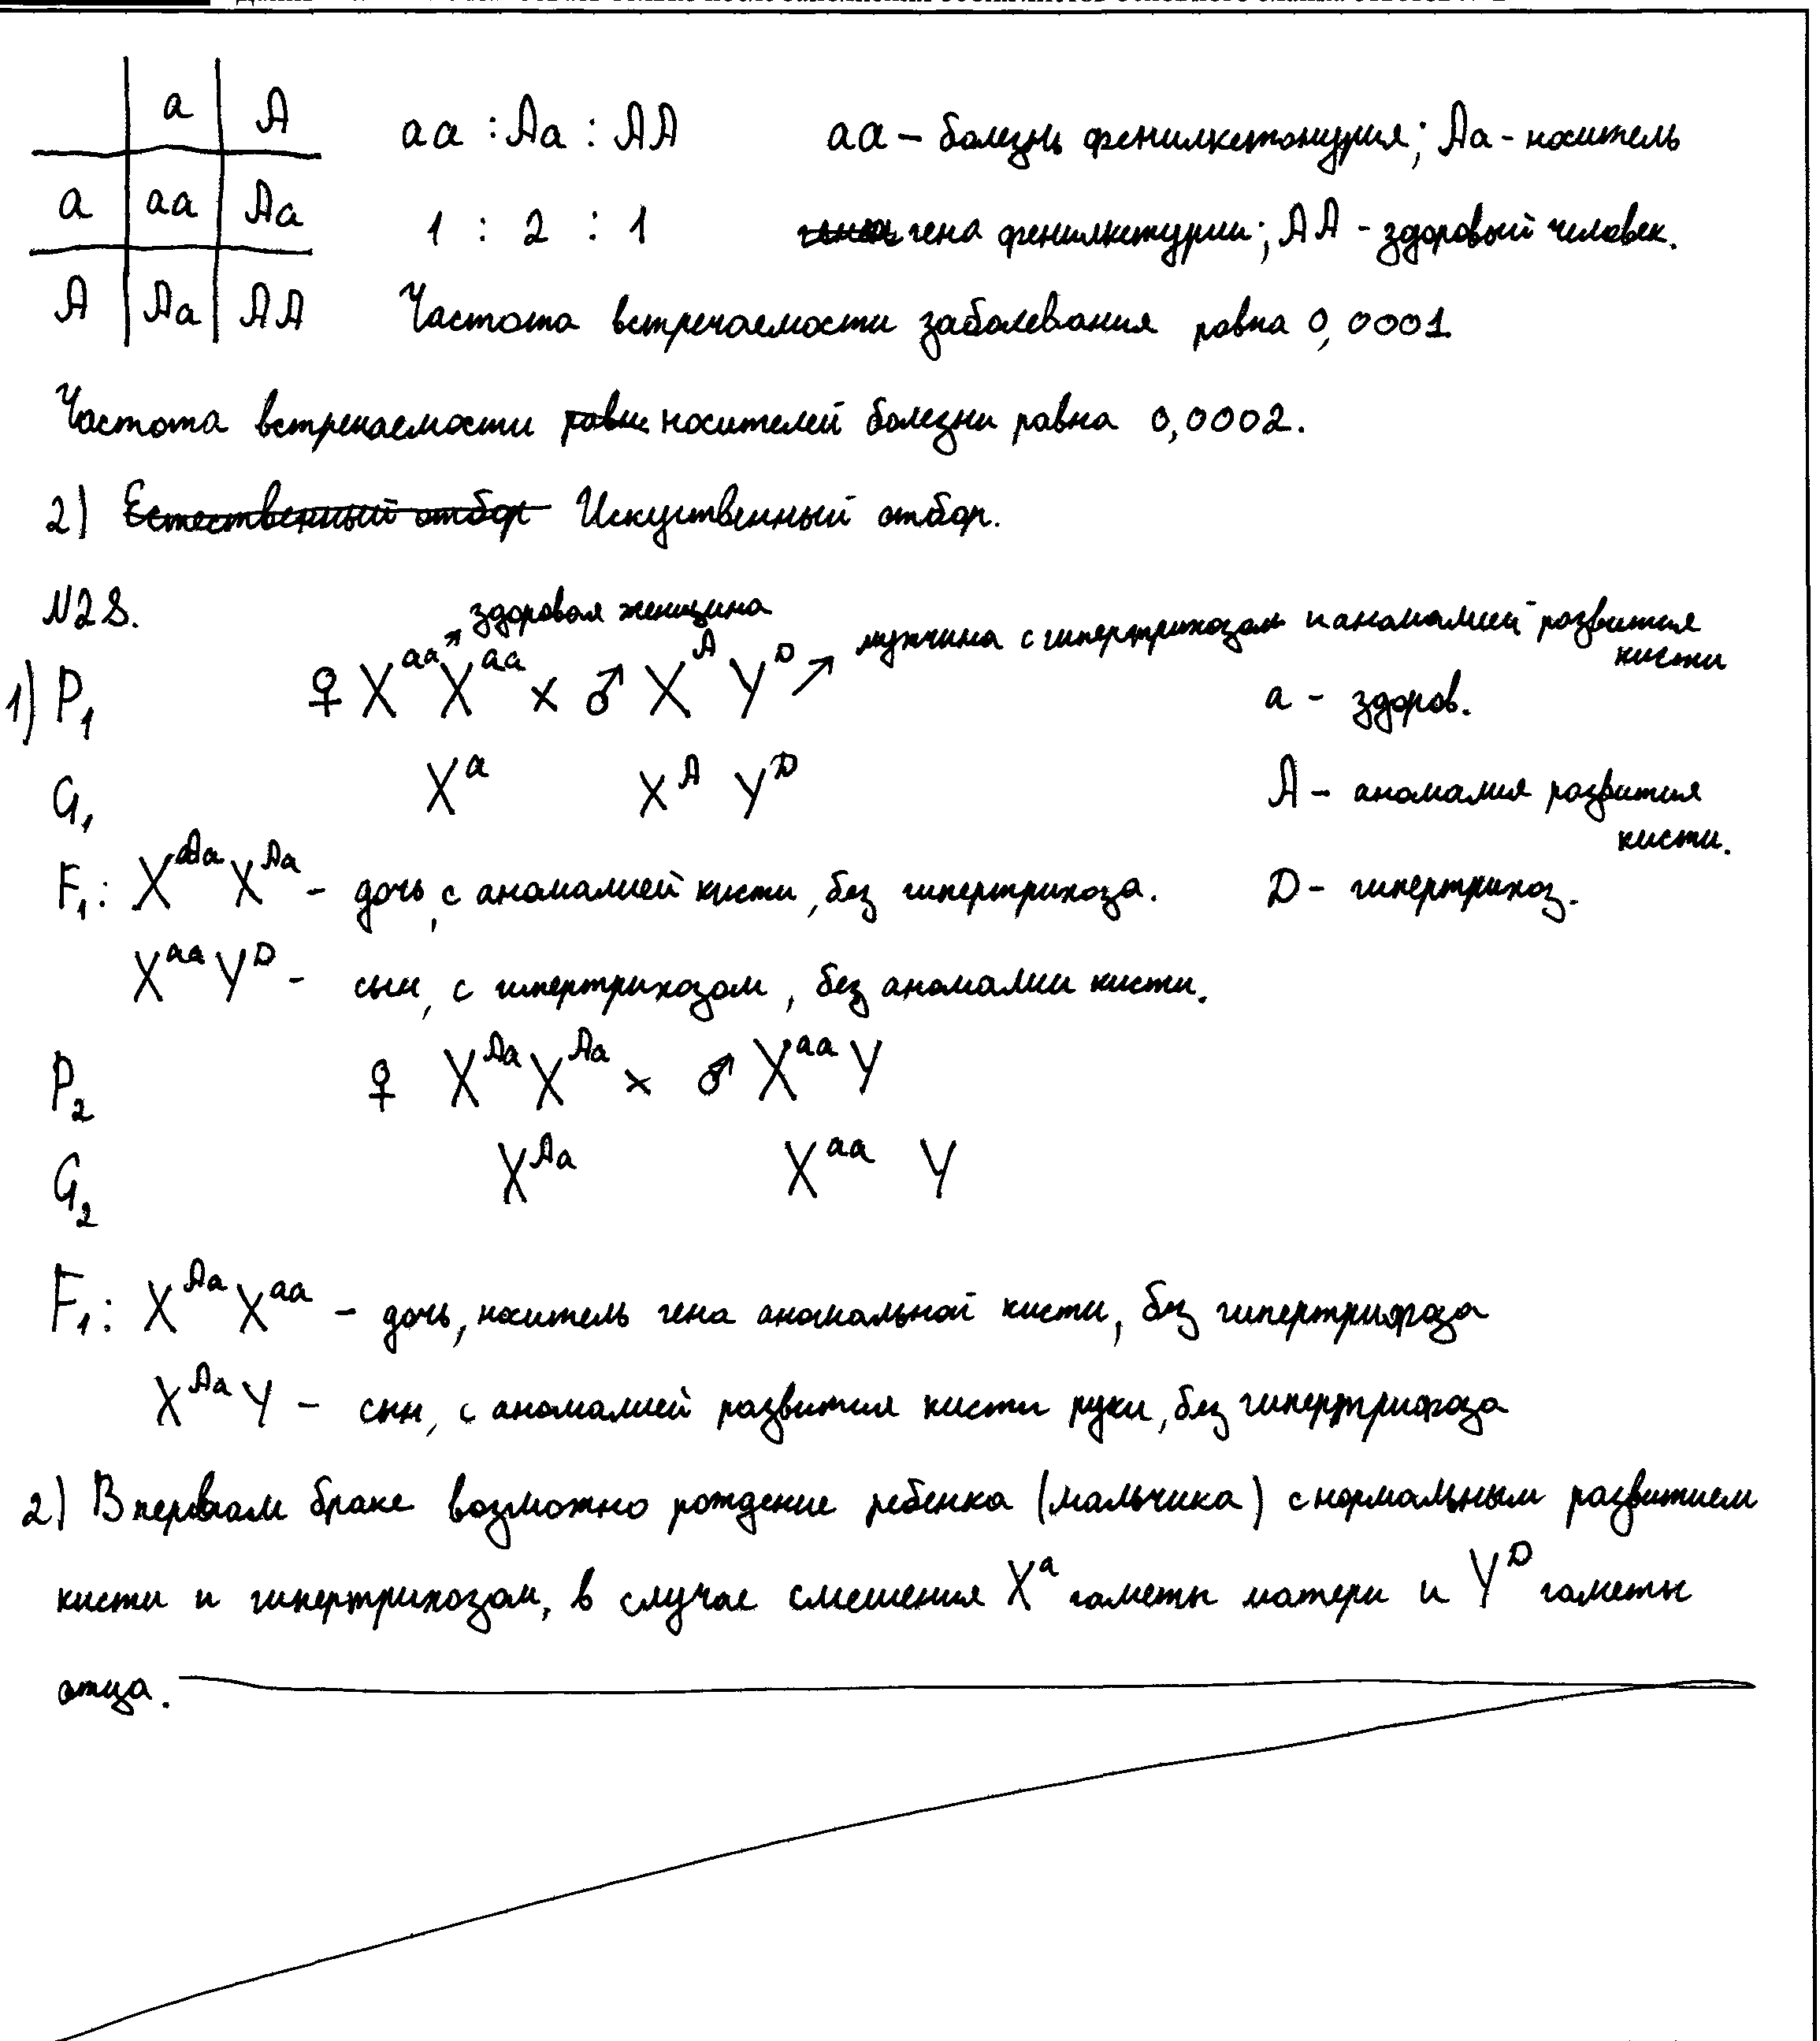 a | A
a | aa | Aa
A | Aa | AA
aa : Aa : AA
1 : 2 : 1
aa – болезнь фенилкетонурия; Aa - носитель
гена фенилкетурии; AA - здоровый человек.
Частота встречаемости заболевания равна 0,0001
Частота встречаемости носителей болезни равна 0,0002.
2) Естественный отбор Искуственный отбор.
N28.
здоровая женщина
мужчина с гипертрихозом и аномалией развития кисти
1) P₁ ♀ X^aa X^aa × ♂ X^A Y^D
a - здоров.
G₁ X^a X^A Y^D
A - аномалия развития кисти.
F₁: X^Aa X^Aa - дочь, с аномалией кисти, без гипертрихоза.
D - гипертрихоз.
X^aa Y^D - сын, с гипертрихозом, без аномалии кисти.
P₂ ♀ X^Aa X^Aa × ♂ X^aa Y
G₂ X^Aa X^aa Y
F₁: X^Aa X^aa – дочь, носитель гена аномальной кисти, без гипертрифоза
X^Aa Y – сын, с аномалией развития кисти руки, без гипертрифоза
2) В первом браке возможно рождение ребенка (мальчика) с нормальным развитием
кисти и гипертрихозом, в случае смешения X^a гаметы матери и Y^D гаметы
отца.